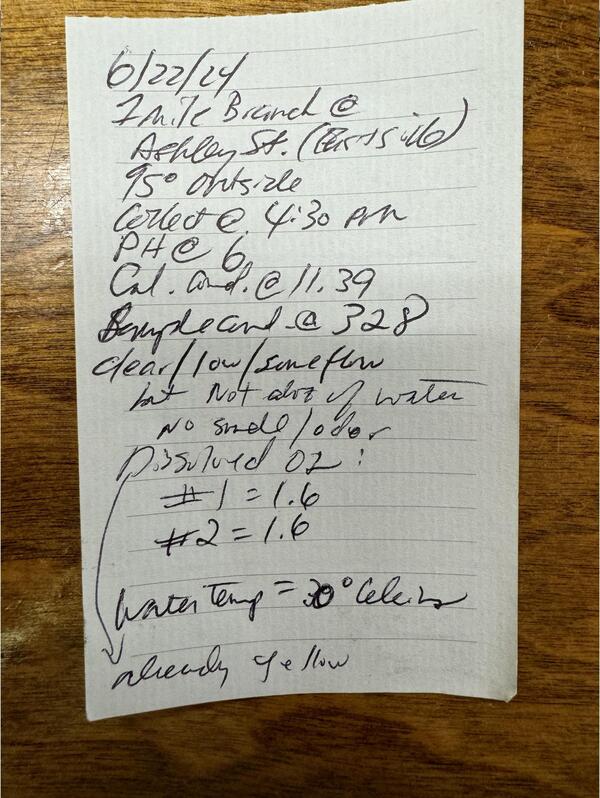 6/22/24
1 Mile Branch @
Ashley St. (East side)
95° outside
Collect @ 4:30 pm
PH @ 6
Cal. Cond. @ 11.39
Sample Cond. @ 328
clear/low/some flow
but Not alot of water
No smell/odor
Dissolved O2:
#1 = 1.6
#2 = 1.6
Water Temp = 30° Celsius
already yellow